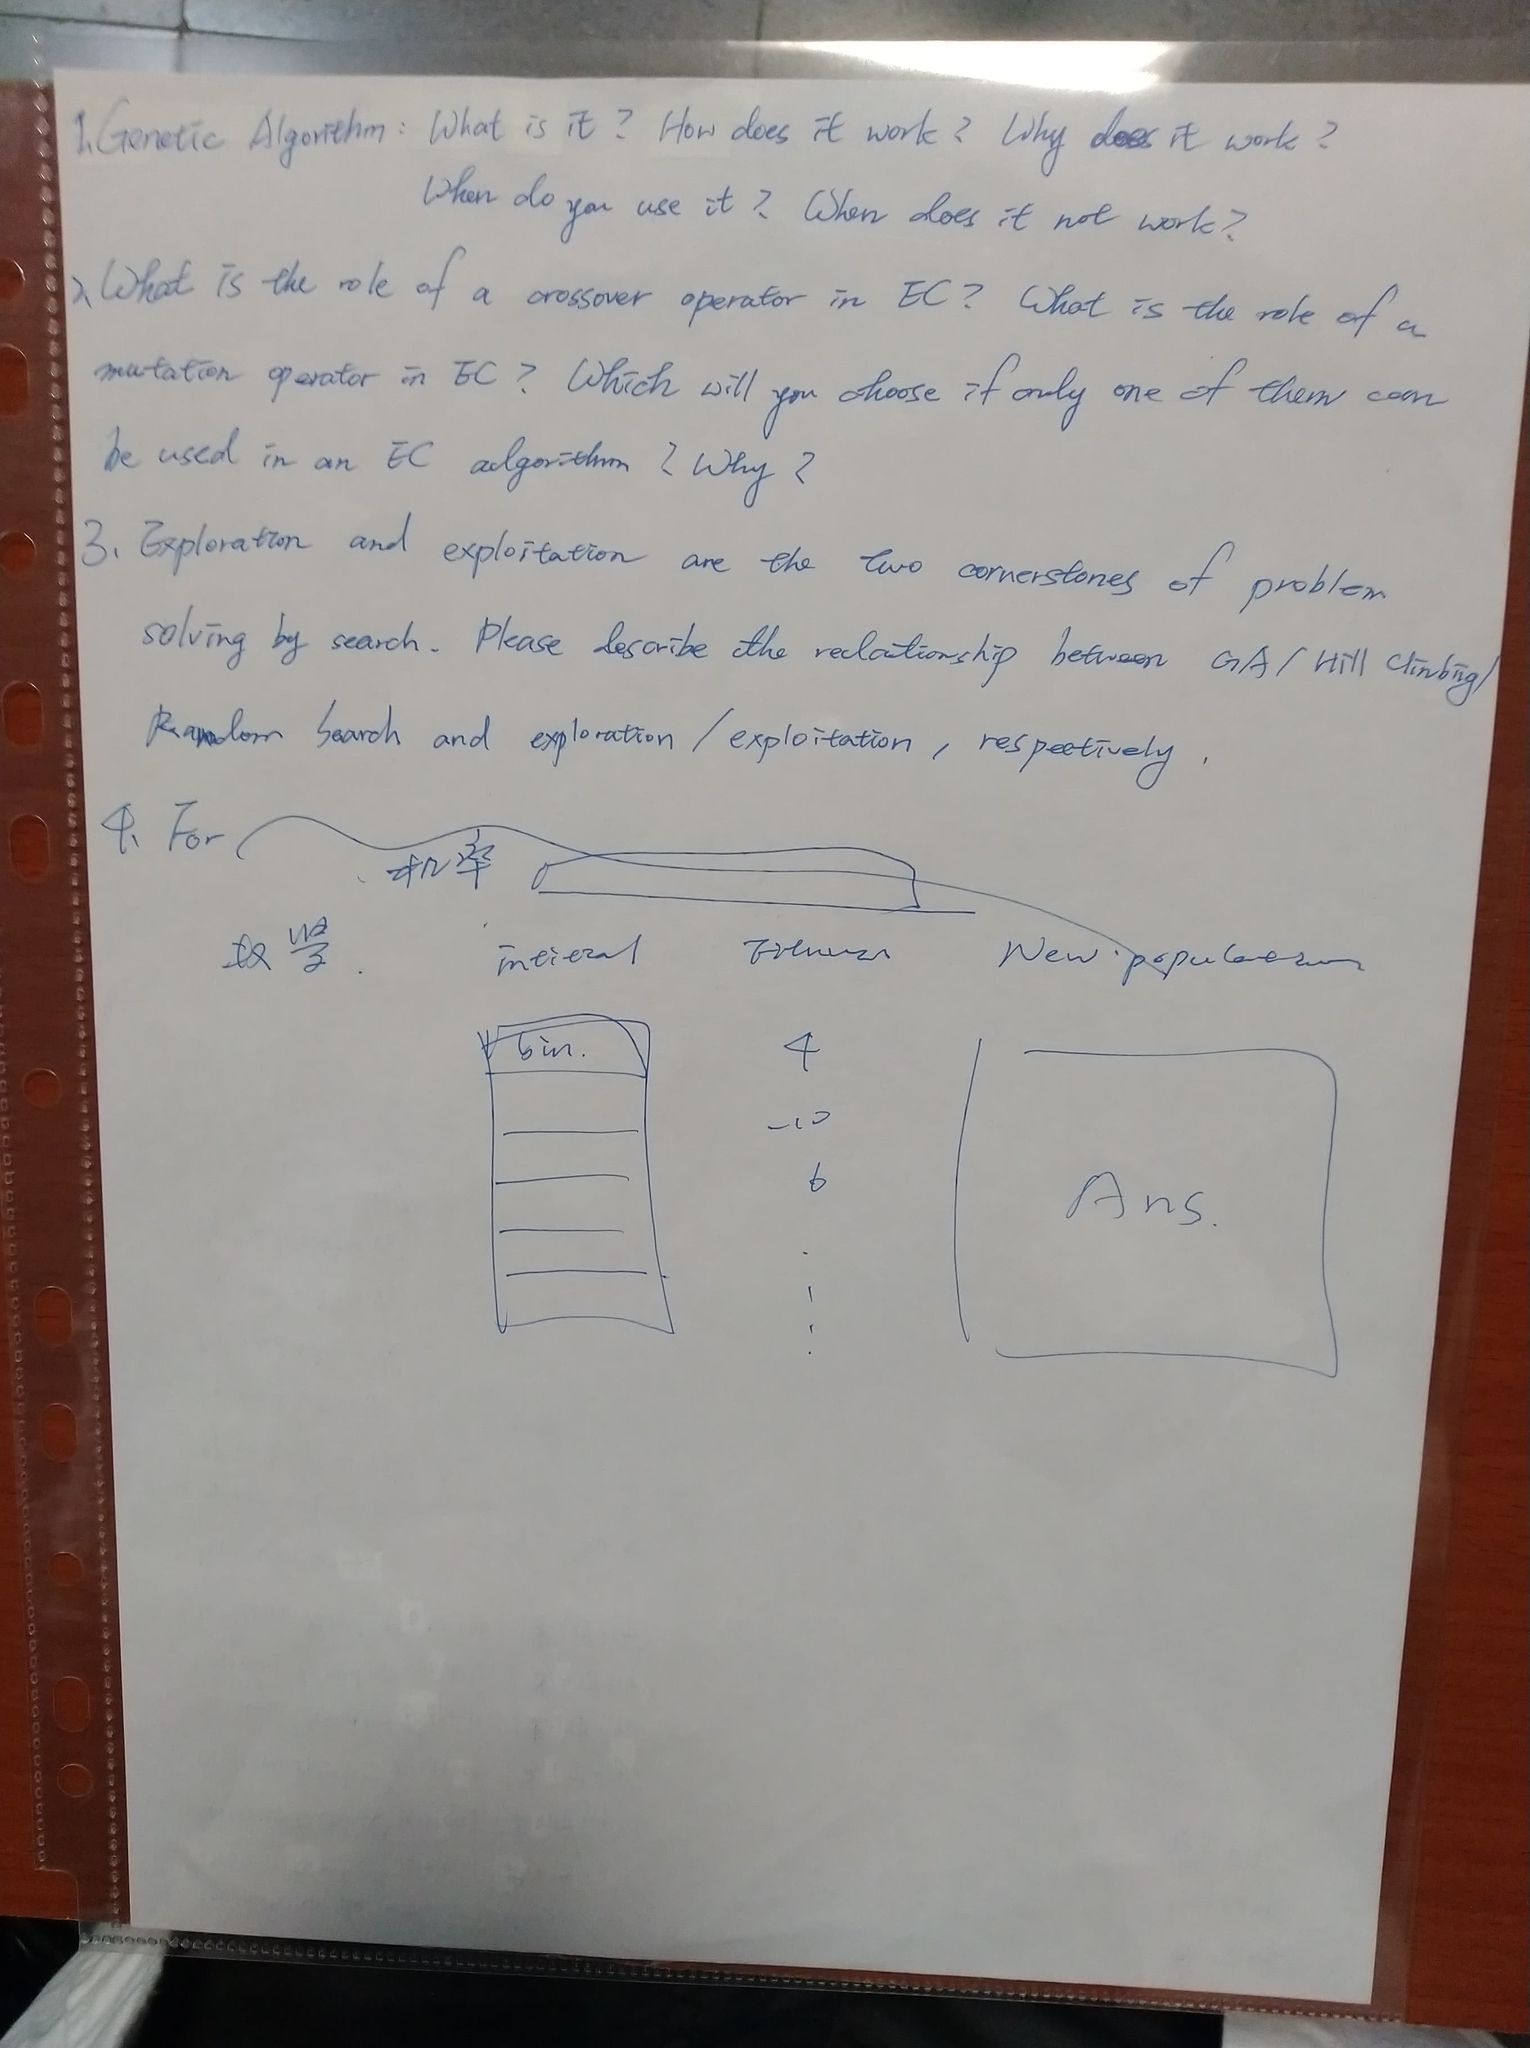 1. Genetic Algorithm: What is it? How does it work? Why does it work?
When do you use it? When does it not work?
2. What is the role of a crossover operator in EC? What is the role of a
mutation operator in EC? Which will you choose if only one of them can
be used in an EC algorithm? Why?
3. Exploration and exploitation are the two cornerstones of problem
solving by search. Please describe the relationship between GA/Hill Climbing/
Random Search and exploration/exploitation, respectively.
4. For
机率
New population
bin. 4
-10
6
Ans.